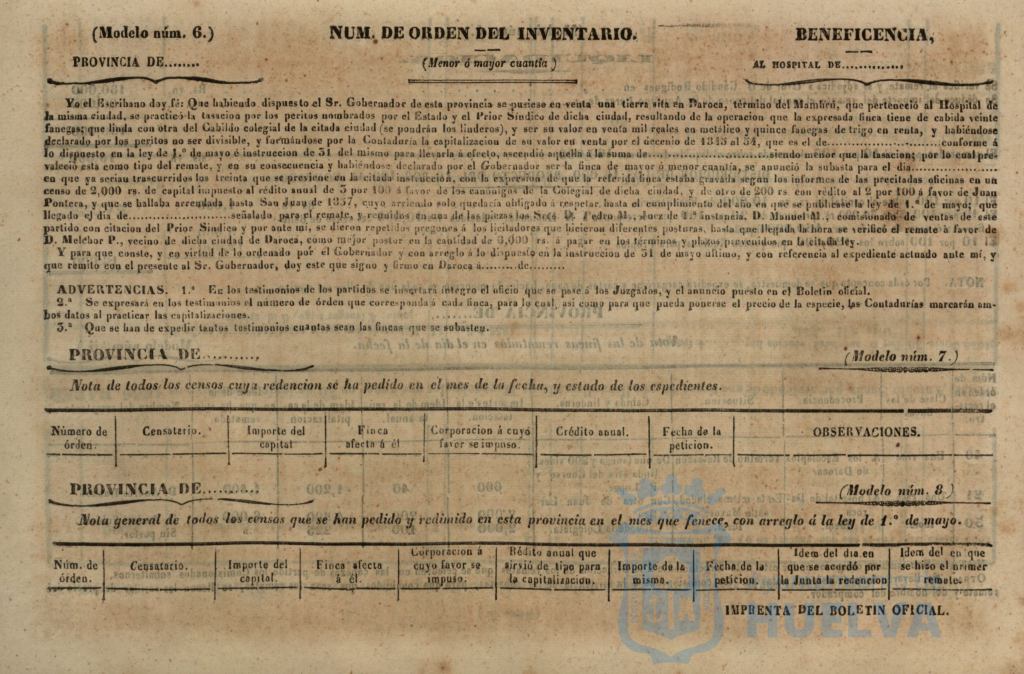 (Modelo núm. 6.) NUM. DE ORDEN DEL INVENTARIO. BENEFICENCIA,
PROVINCIA DE........ (Menor ó mayor cuantía) AL HOSPITAL DE..............
Yo el Escribano doy fé: Que habiendo dispuesto el Sr. Gobernador de esta provincia se pusiese en venta una tierra sita en Daroca, término del Mambrú, que perteneció al Hospital de
la misma ciudad, se practicó la tasacion por los peritos nombrados por el Estado y el Prior Síndico de dicha ciudad, resultando de la operacion que la expresada finca tiene de cabida veinte
fanegas; que linda con otra del Cabildo colegial de la citada ciudad (se pondrán los linderos), y ser su valor en venta mil reales en metálico y quince fanegas de trigo en renta, y habiéndose
declarado por los peritos no ser divisible, y formándose por la Contaduría la capitalizacion de su valor en venta por el decenio de 1845 al 54, que es el de......................conforme á
lo dispuesto en la ley de 1.º de mayo é instruccion de 31 del mismo para llevarla á efecto, ascendió aquella á la suma de......................siendo menor que la tasacion; por lo cual pre-
valeció esta como tipo del remate, y en su consecuencia y habiéndose declarado por el Gobernador ser la finca de mayor ó menor cuantía, se anunció la subasta para el dia..............
en que ya serian trascurridos los treinta que se previene en la citada instruccion, con la expresion de que la referida finca estaba gravada segun los informes de las precitadas oficinas en un
censo de 2,000 rs. de capital impuesto al rédito anual de 3 por 100 á favor de los canónigos de la Colegial de dicha ciudad, y de otro de 200 rs. con rédito al 2 por 100 á favor de Juan
Ponteca, y que se hallaba arrendada hasta San Juan de 1857, cuyo arriendo solo quedaría obligado á respetar hasta el cumplimiento del año en que se publicase la ley de 1.º de mayo; que
llegado el dia de................señalado para el remate, y reunidos en una de las piezas los Sres. D. Pedro M., Juez de 1.ª instancia, D. Manuel M., comisionado de ventas de este
partido con citacion del Prior Síndico y por ante mí, se dieron repetidos pregones á los licitadores que hicieron diferentes posturas, hasta que llegada la hora se verificó el remate á favor de
D. Melchor P., vecino de dicha ciudad de Daroca, como mejor postor en la cantidad de 6,000 rs. á pagar en los términos y plazos prevenidos en la citada ley.
Y para que conste, y en virtud de lo ordenado por el Gobernador y con arreglo á lo dispuesto en la instruccion de 31 de mayo último, y con referencia al expediente actuado ante mí, y
que remito con el presente al Sr. Gobernador, doy este que signo y firmo en Daroca á........de........
ADVERTENCIAS. 1.ª En los testimonios de los partidos se insertará íntegro el oficio que se pase á los Juzgados, y el anuncio puesto en el Boletin oficial.
2.ª Se expresará en los testimonios el número de órden que corresponda á cada finca, para lo cual, así como para que pueda ponerse el precio de la especie, las Contadurías marcarán am-
bos datos al practicar las capitalizaciones.
3.ª Que se han de expedir tantos testimonios cuantas sean las fincas que se subasten.
PROVINCIA DE.........., (Modelo núm. 7.)
Nota de todos los censos cuya redencion se ha pedido en el mes de la fecha, y estado de los espedientes.
Número de Censatario. Importe del Finca Corporacion á cuyo Crédito anual. Fecha de la OBSERVACIONES.
órden. capital afecta á él favor se impuso. peticion.
PROVINCIA DE.........., (Modelo núm. 8.)
Nota general de todos los censos que se han pedido y redimido en esta provincia en el mes que fenece, con arreglo á la ley de 1.º de mayo.
Corporacion á Rédito anual que Idem del dia en Idem del en que
Núm. de Censatario. Importe del Finca afecta cuyo favor se sirvió de tipo para Importe de la Fecha de la que se acordó por se hizo el primer
órden. capital. á él. impuso. la capitalizacion. misma. peticion. la Junta la redencion remate.
IMPRENTA DEL BOLETIN OFICIAL.
HUELVA